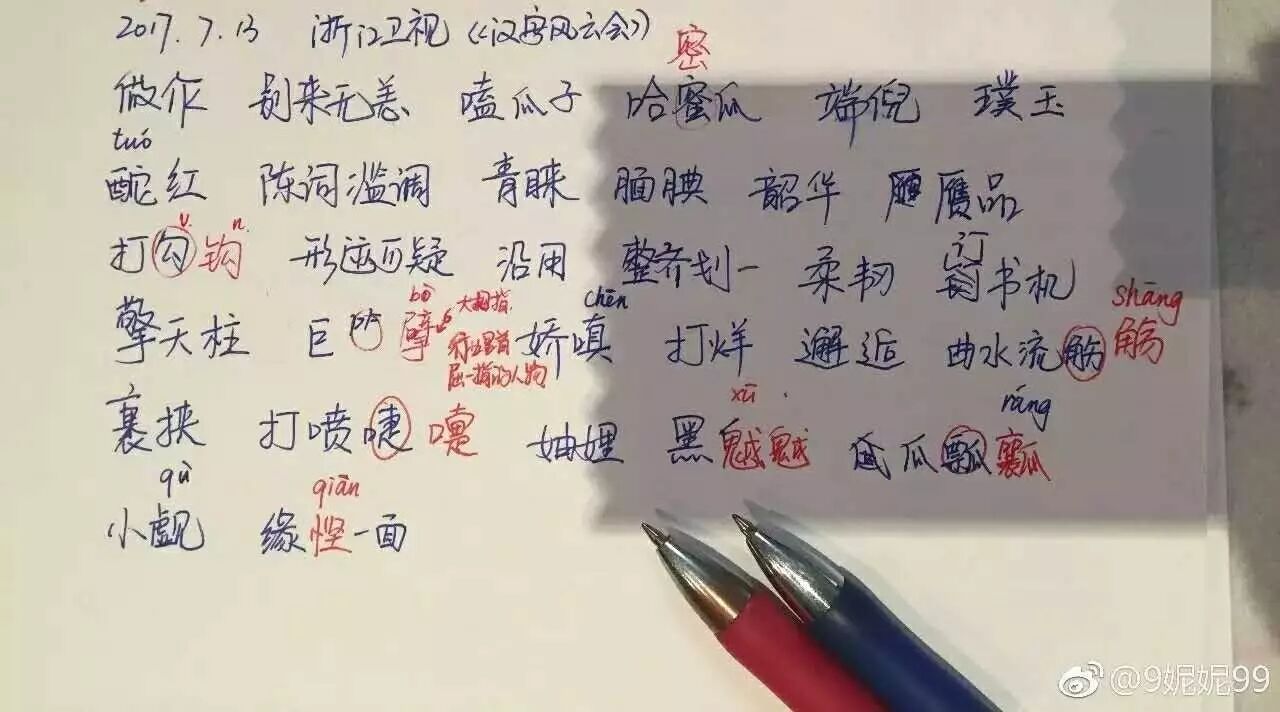 2017.7.13 浙江卫视《汉字风云会》
密
做作 别来无恙 嗑瓜子 哈蜜瓜 端倪 璞玉
tuó
酡红 陈词滥调 青睐 腼腆 韶华 赝品
打勾钩 形迹可疑 沿用 整齐划一 柔韧 订书机
bò 大拇指. chēn shāng
擎天柱 巨 擘 行业里首屈一指的人物 娇嗔 打烊 邂逅 曲水流觞 觞
xū ráng
裹挟 打喷嚏 嚏 妯娌 黑魆魆 瓜瓢瓤
qù qiān
小觑 缘悭一面
@9妮妮99